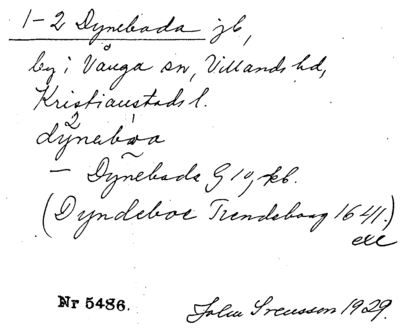 1-2 Dyneboda jb,
by i Vånga sn, Villands hd,
Kristianstads l.
dýneb
— Dyneboda G 10, kb.
(Dyndeboe 1641.)
Nr 5486. John Svensson 1929.